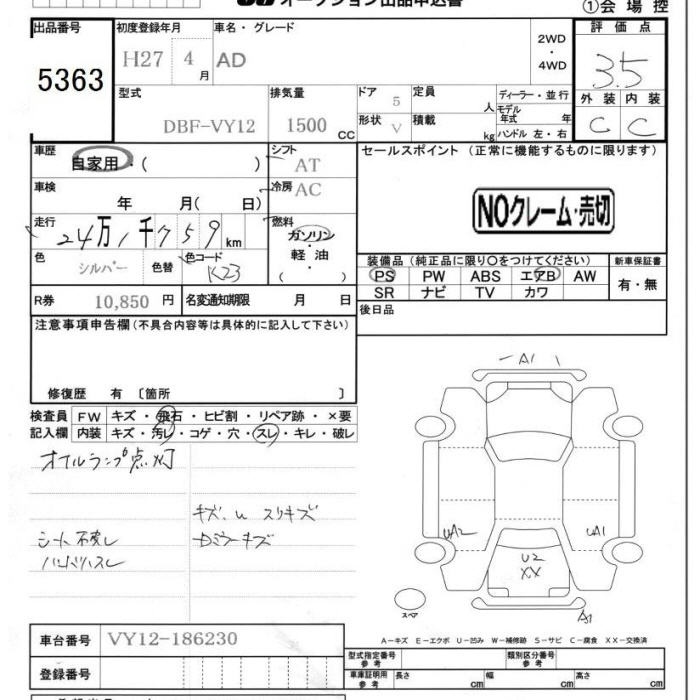 オークション出品申込書
①会場控
出品番号
5363
初度登録年月
H27 4月
車名・グレード
AD
2WD
・
4WD
評価点
3.5
外装 内装
C C
型式
DBF-VY12
排気量
1500 CC
ドア 5
形状 V
定員 人
積載 kg
ディーラー・並行
モデル年式 年
ハンドル 左・右
車歴
自家用・( )
シフト
AT
車検
年 月( 日)
冷房
AC
走行
24万1千759km
燃料
ガソリン
・
軽油
( )
色
シルバー
色替
色コード
K23
R券
10,850円
名変通知期限 月 日
セールスポイント(正常に機能するものに限ります)
NOクレーム・売切
装備品(純正品に限り○をつけてください)
PS PW ABS エアB AW
SR ナビ TV カワ
新車保証書
有・無
後日品
注意事項申告欄(不具合内容等は具体的に記入して下さい)
修復歴 有〔箇所 〕
検査員記入欄
FW キズ・飛石・ヒビ割・リペア跡・×要
内装 キズ・汚レ・コゲ・穴・スレ・キレ・破レ
オイルランプ点灯
キズ、U スリキズ
Dミラーキズ
ハンドルスレ
A1
UA2
UA1
U2
XX
A1
スペア
A-キズ E-エクボ U-凹み W-補修跡 S-サビ C-腐食 XX-交換済
車台番号
VY12-186230
登録番号
型式指定番号
参考
類別区分番号
参考
車庫証明用
参考
長さ cm 幅 cm 高さ cm